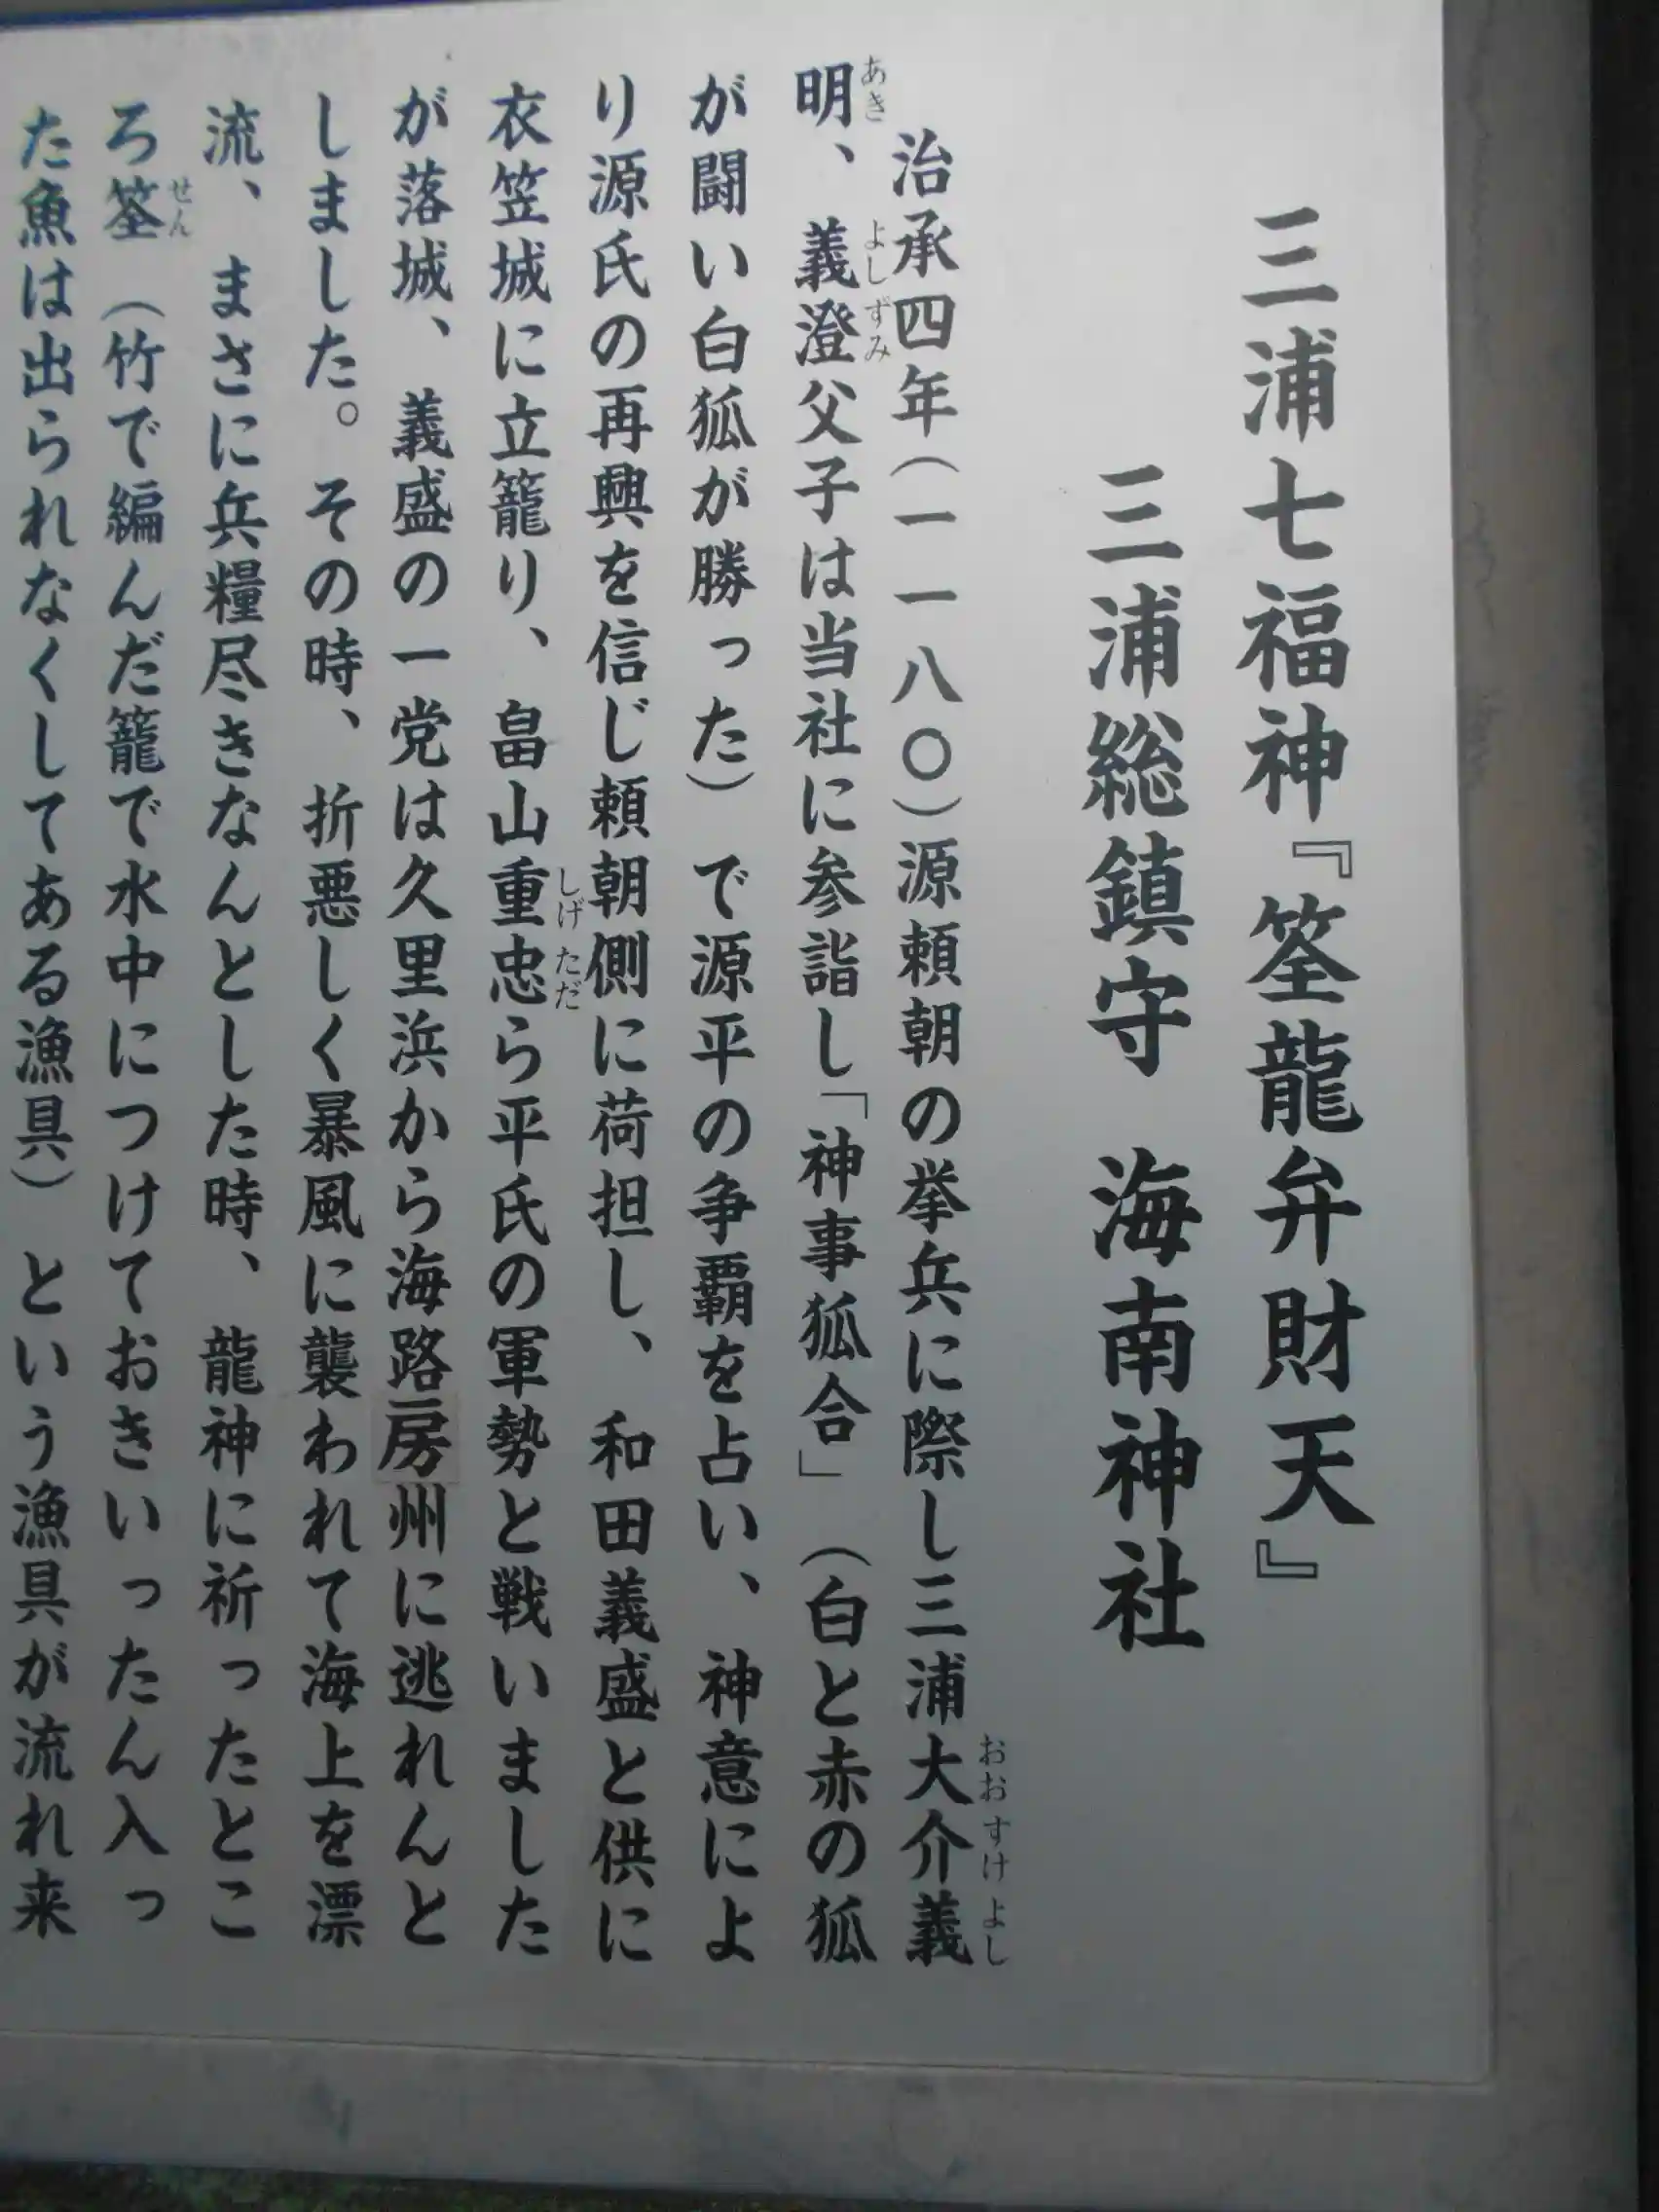 三浦七福神『筌龍弁財天』
三浦総鎮守 海南神社
治承四年(一一八〇)源頼朝の挙兵に際し三浦大介義
おおすけよし
明、義澄父子は当社に参詣し「神事狐合」(白と赤の狐
あき よしずみ
が闘い白狐が勝った)で源平の争覇を占い、神意によ
り源氏の再興を信じ頼朝側に荷担し、和田義盛と供に
衣笠城に立籠り、畠山重忠ら平氏の軍勢と戦いました
しげただ
が落城、義盛の一党は久里浜から海路房州に逃れんと
しました。その時、折悪しく暴風に襲われて海上を漂
流、まさに兵糧尽きなんとした時、龍神に祈ったとこ
ろ筌(竹で編んだ籠で水中につけておきいったん入っ
せん
た魚は出られなくしてある漁具)という漁具が流れ来